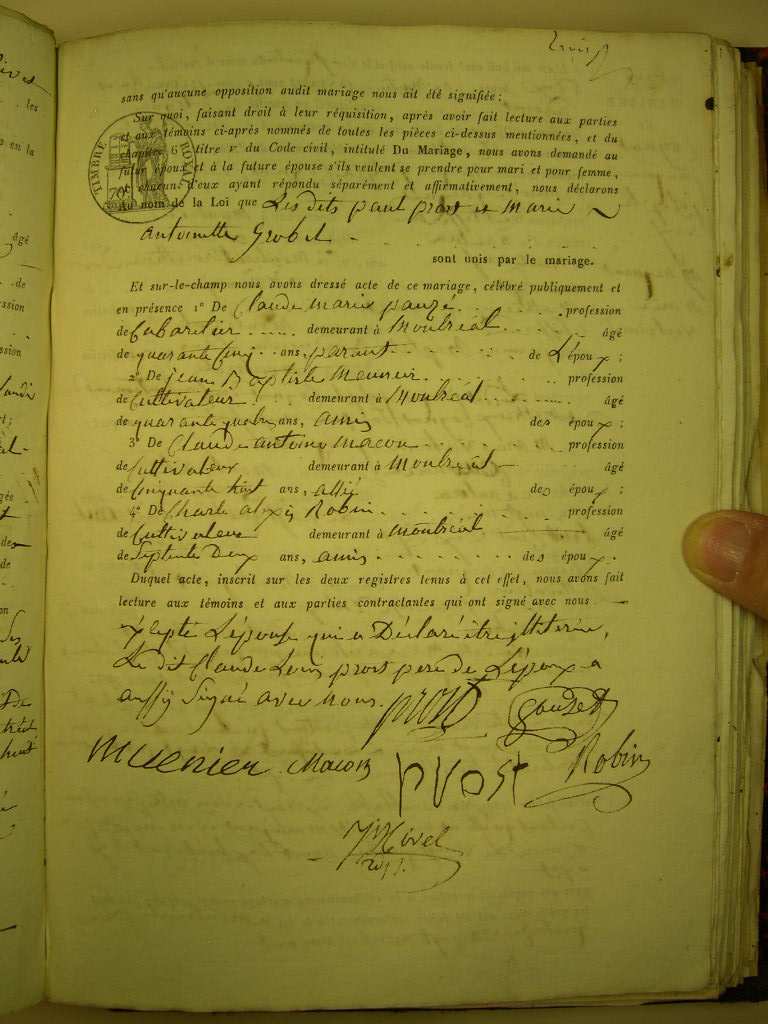 sans qu'aucune opposition audit mariage nous ait été signifiée ;
Sur quoi, faisant droit à leur réquisition, après avoir fait lecture aux parties
et aux témoins ci-après nommés de toutes les pièces ci-dessus mentionnées, et du
chapitre 6 titre V du Code civil, intitulé Du Mariage, nous avons demandé au
futur époux et à la future épouse s'ils veulent se prendre pour mari et pour femme,
et chacun d'eux ayant répondu séparément et affirmativement, nous déclarons
Au nom de la Loi que Les dits paul prost et Marie
antoinette Grobel
sont unis par le mariage.
Et sur-le-champ nous avons dressé acte de ce mariage, célébré publiquement et
en présence 1° De Claude marie pauzé profession
de Cabaretier demeurant à Montréal âgé
de quarante cinq ans, parent de L'époux ;
2° De jean Baptiste Meunier profession
de Cultivateur demeurant à Montréal âgé
de quarante quatre ans, amis des époux ;
3° De Claude antoine Macon profession
de Cultivateur demeurant à Montréal âgé
de Cinquante huit ans, allié des époux ;
4° De Charle alexis Robin profession
de Cultivateur demeurant à Montréal âgé
de Septente Deux ans, amis des époux.
Duquel acte, inscrit sur les deux registres tenus à cet effet, nous avons fait
lecture aux témoins et aux parties contractantes qui ont signé avec nous
Excepté L'épouse qui a Déclaré être illeterée,
Le dit Claude Louis prost pere de L'époux a
aussy Signé avec nous. prost Gouzet
Muenier Macon prost Robin
TIMBRE ROYAL